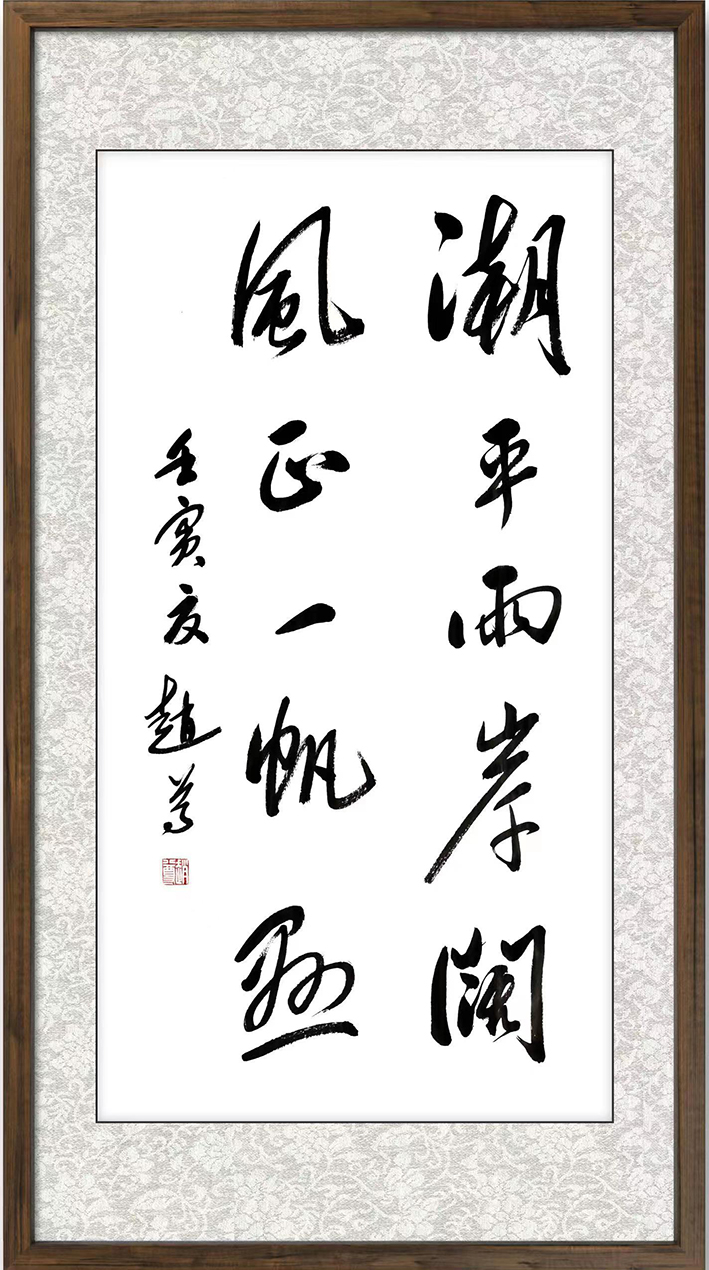 潮平兩岸闊
風正一帆懸
壬寅夏趙